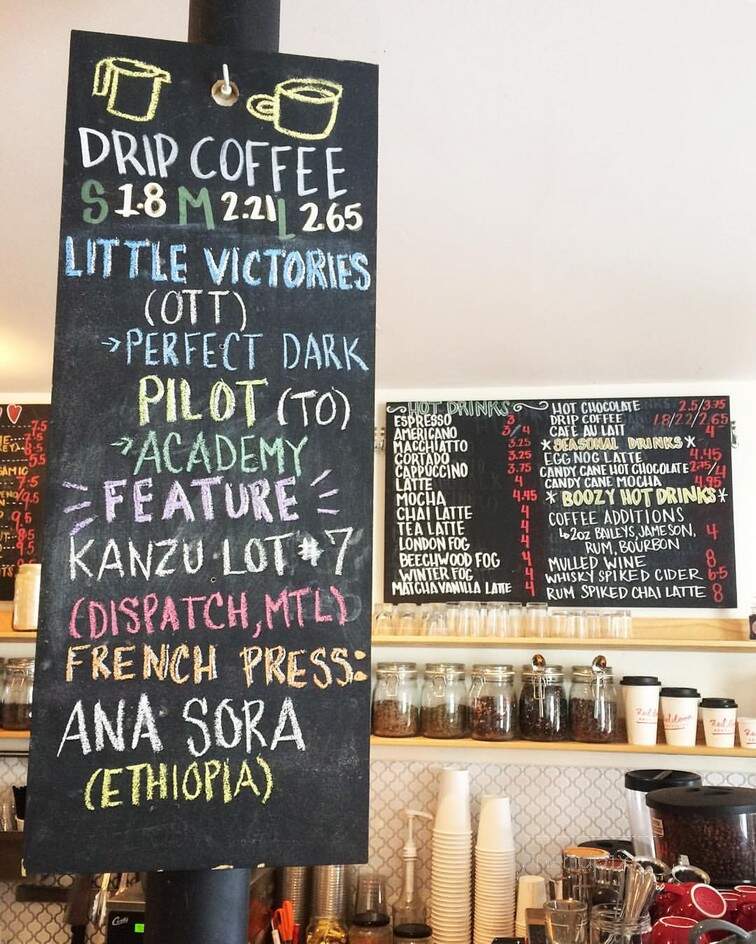 DRIP COFFEE
S 1.8 M 2.21 L 2.65
LITTLE VICTORIES
(OTT)
→PERFECT DARK
PILOT (TO)
→ACADEMY
FEATURE
KANZU LOT #7
(DISPATCH, MTL)
FRENCH PRESS:
ANA SORA
(ETHIOPIA)
HOT DRINKS
ESPRESSO 3
AMERICANO 3/4
MACCHIATTO 3.25
CORTADO 3.25
CAPPUCCINO 3.75
LATTE 4
MOCHA 4.45
CHAI LATTE 4
TEA LATTE 4
LONDON FOG 4
BEECHWOOD FOG 4
WINTER FOG 4
MATCHA VANILLA LATTE 4
HOT CHOCOLATE 2.5/3.75
DRIP COFFEE 1.8/2.2/2.65
CAFÉ AU LAIT 4
*SEASONAL DRINKS*
EGG NOG LATTE 4.45
CANDY CANE HOT CHOCOLATE 2.75/4
CANDY CANE MOCHA 4.95
*BOOZY HOT DRINKS*
COFFEE ADDITIONS
↳2oz BAILEYS, JAMESON, 4
RUM, BOURBON
MULLED WINE 8
WHISKY SPIKED CIDER 6.5
RUM SPIKED CHAI LATTE 8